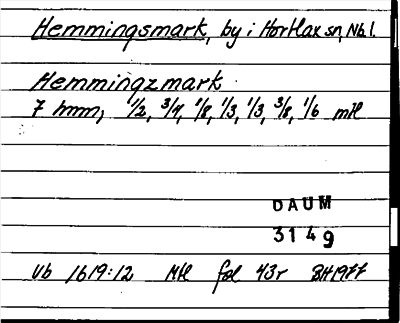 Hemmingsmark, by i Hortlax sn, Nb.l.
Hemmingzmark
7 hmm, 1/2, 3/4, 1/8, 1/3, 1/3, 3/8, 1/6 mtl
DAUM
3149
Vb 1619:12 Mtl fol 43r BH1977